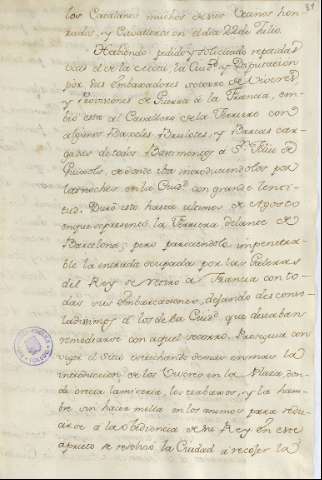 los Catalanes muchos de sus Varones hon-
rados, y Cavalleros en el dia 22 de Julio.
Habiendo pedido y solicitado repetidas
la Ciud. y Diputacion
por sus Embaxadores socorro de Viveres
y Provisiones de Guerra a la Francia, em-
bió esta al Cavallero de la Ferriere con
algunos Baxeles Brulotes, y Barcas car-
gadas de todos Bastimentos à Sn. Feliu de
Guixols, de donde iba introduciendolos por
las noches en la Ciud. con grande lenti-
tud. Duró esto hasta ultimos de Agosto
en que se presentó la Ferriere delante de
Barcelona; pero pareciendole impenetra-
ble la entrada ocupada por las Galeras
del Rey se retiro a Francia con to-
das sus Embarcaciones, dejando descons-
oladissimos à los de la Ciud. que deseaban
remediarse con aquel socorro. Proseguia con
vigor el sitio estrechando demas en mas la
introduccion de los Viveres en la Plaza, don-
de crecia la miseria, los trabajos, y la ham-
bre sin hacer mella en los animos para redu-
cirse a la Obediencia de su Rey. En este
aprieto se resolvió la Ciudad à recojer la